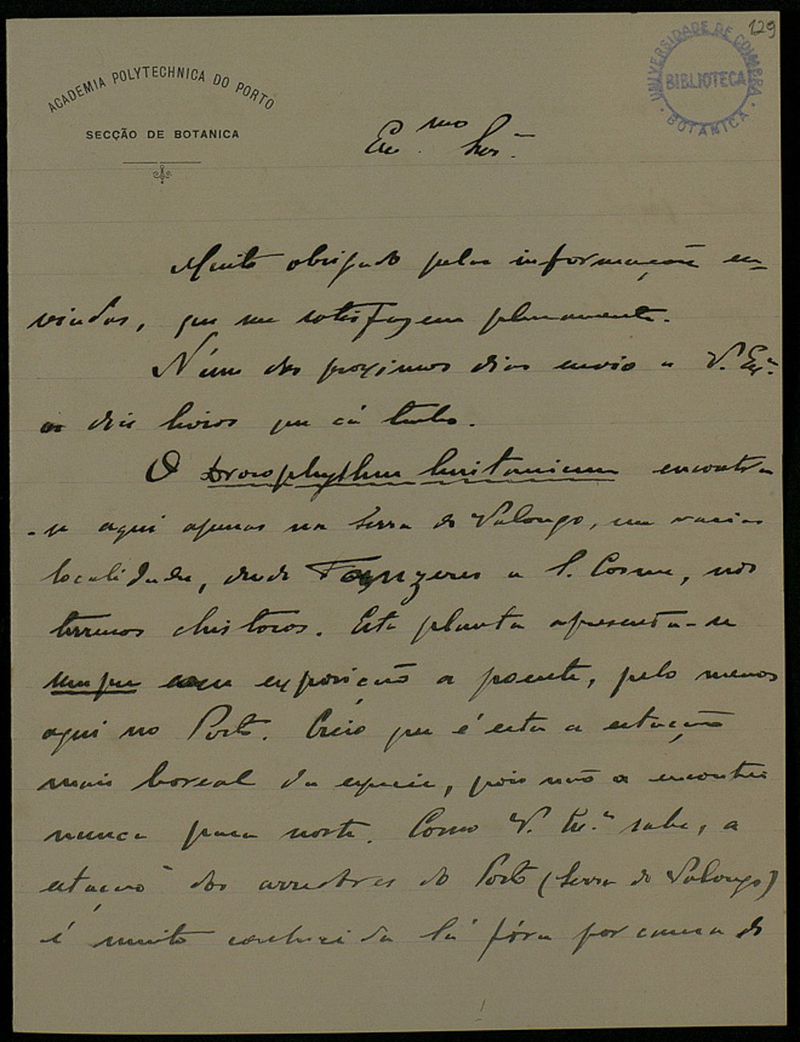 129
ACADEMIA POLYTECHNICA DO PORTO
SECÇÃO DE BOTANICA
UNIVERSIDADE DE COIMBRA
BIBLIOTECA
BOTANICA
Ex.mo Snr.
Muito obrigado pelas informações en-
viadas, que me satisfazem plenamente.
N'um dos proximos dias envio a V. Ex.a
os dois livros que cá tenho.
O Drosophyllum lusitanicum encontra-
-se aqui apenas na Serra de Vallongo, em varias
localidades, desde Fanzeres a S. Cosme, nos
terrenos chistosos. Esta planta apresenta-se
sempre com exposição a poente, pelo menos
aqui no Porto. Creio que é esta a estação
mais boreal da especie, pois não a encontrei
nunca para norte. Como V. Ex.a sabe, a
estação dos arredores do Porto (Serra de Vallongo)
é muito conhecida lá fóra por causa do